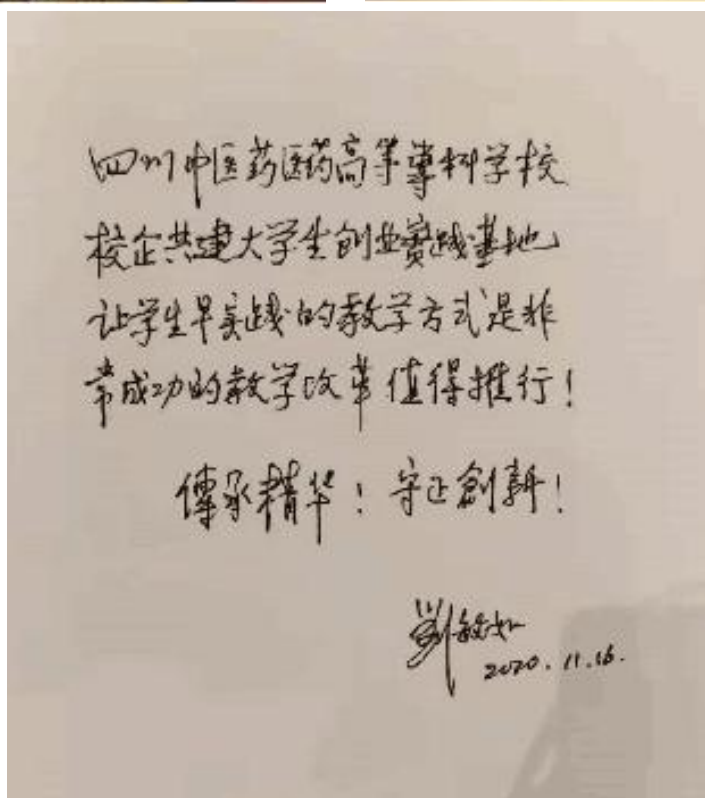 四川中医药医药高等專科学校
校企共建大学生创业實践基地
让学生早实践的教学方式是非
常成功的教学改革值得推行！
傳承精华！守正創新！
劉敏如
2020.11.16.